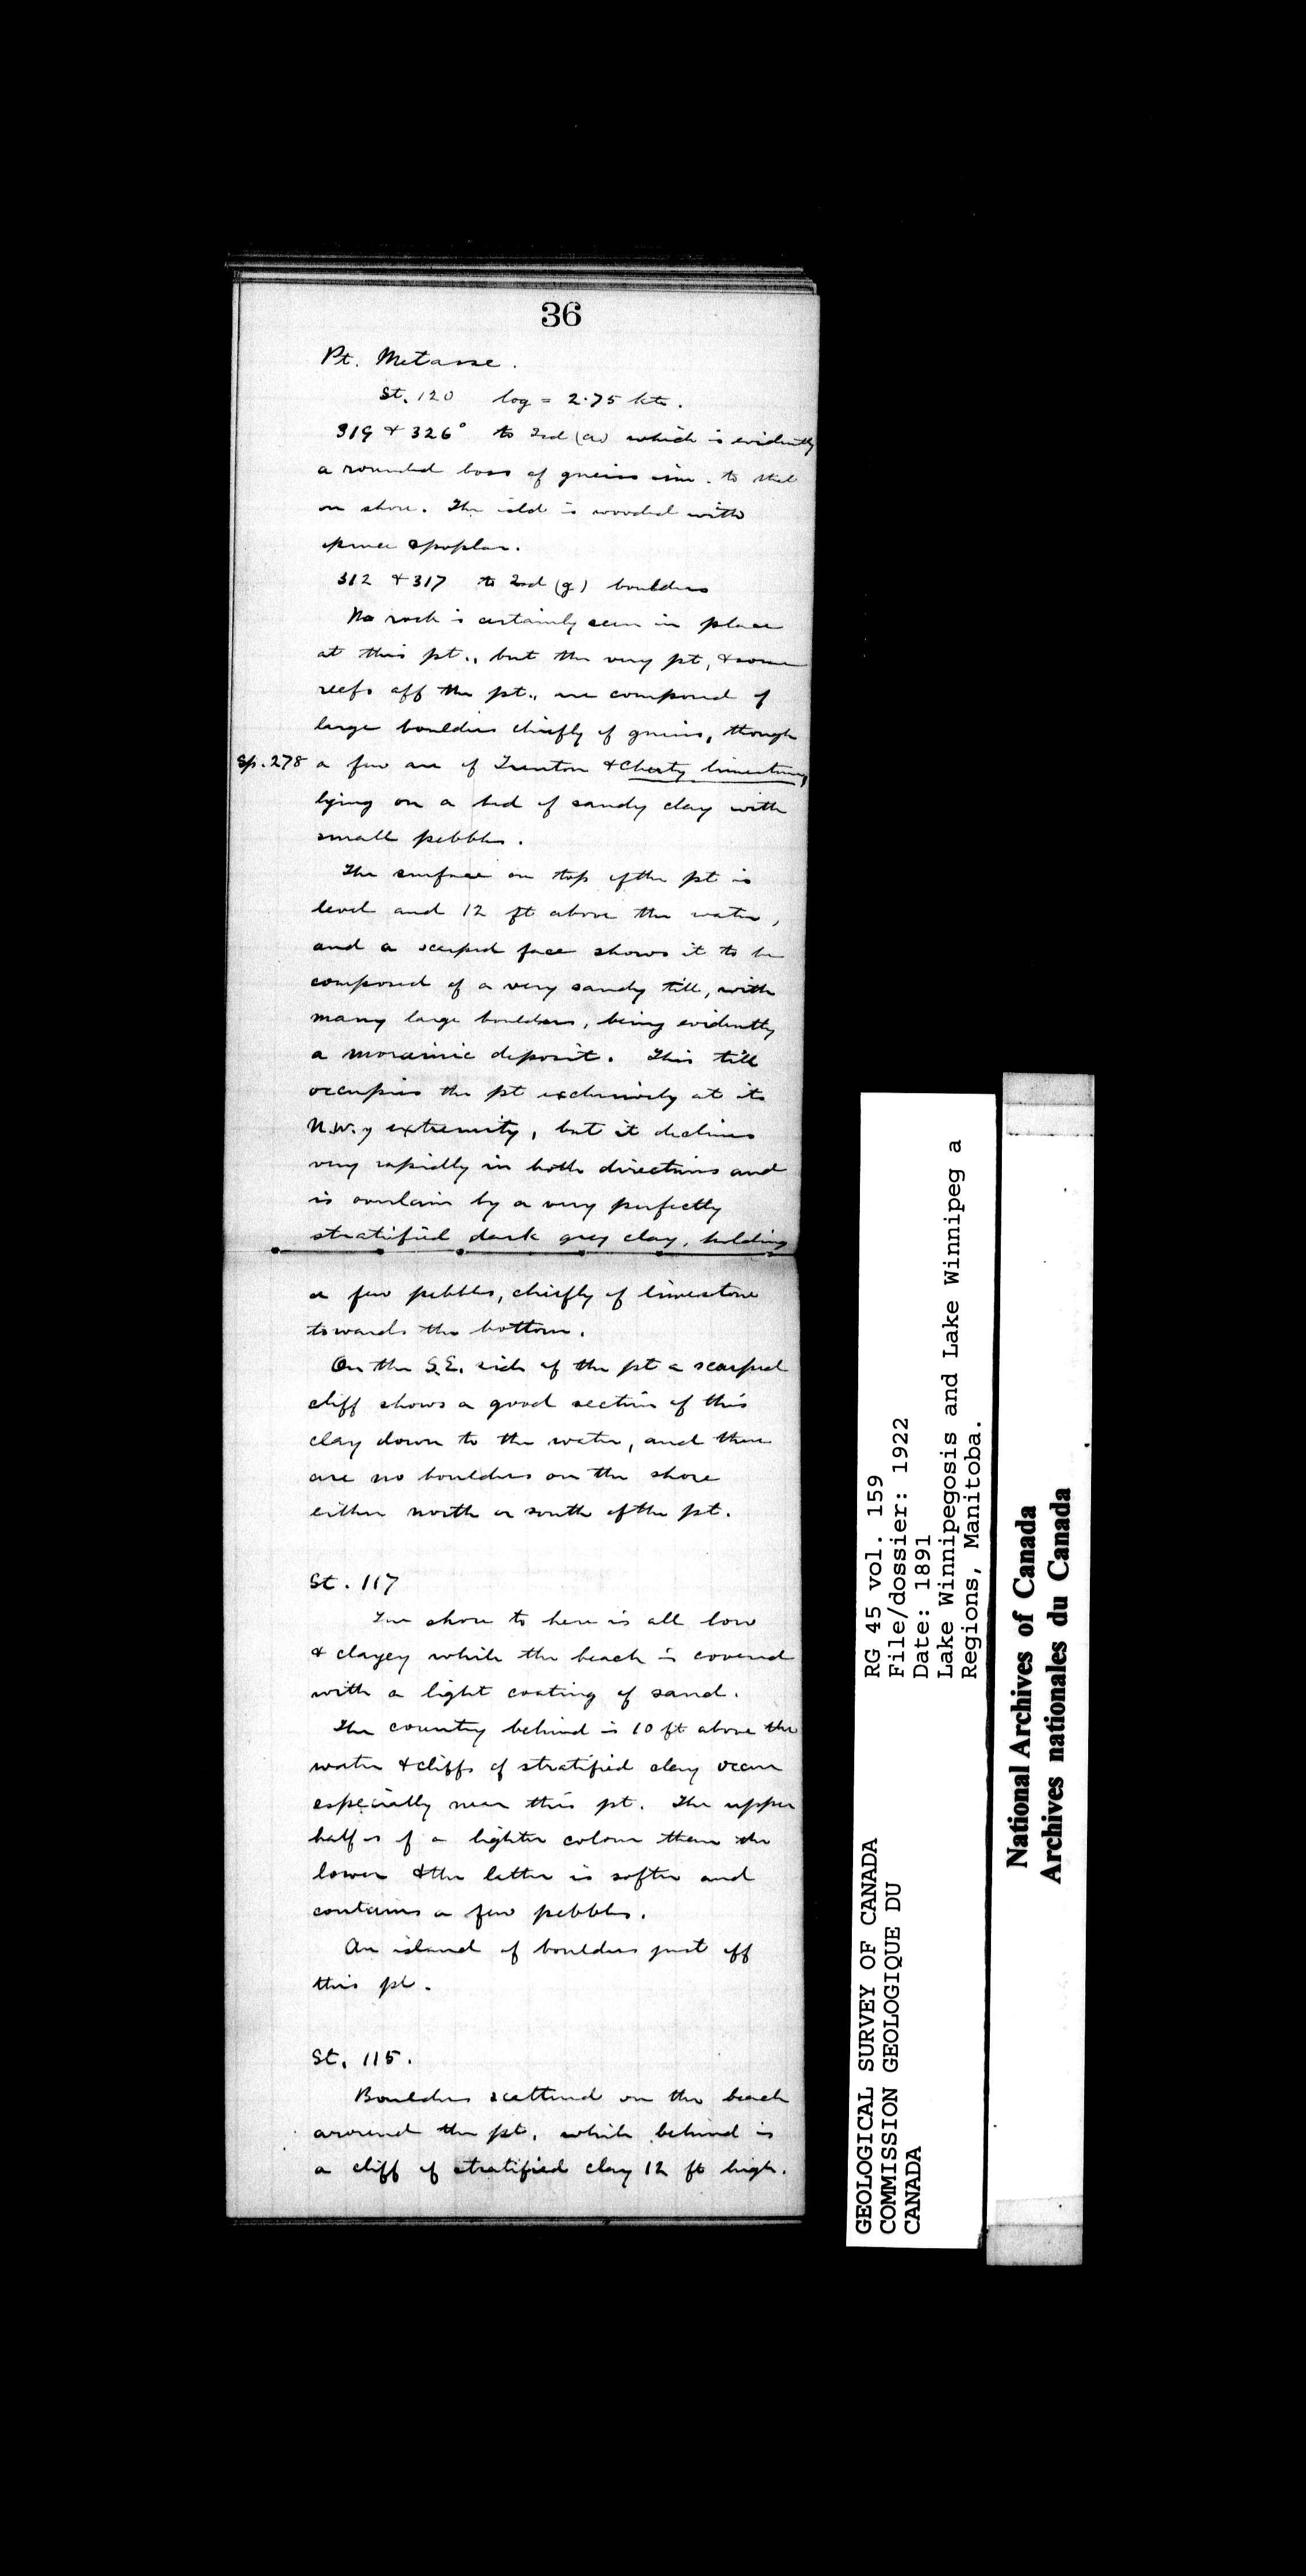 36
Pt. Metasse.
St. 120 log = 2.75 kts.
319 & 326° to Isd (a) which is evidently
a rounded boss of gneiss sim. to that
on shore. The isld is wooded with
spruce & poplar.
312 & 317 to Isd (g) boulders
No rock is certainly seen in place
at this pt., but the very pt, & some
reefs off the pt., are composed of
large boulders chiefly of gneiss, though
Sp. 278 a few are of Trenton & Cherty limestone,
lying on a bed of sandy clay with
small pebbles.
The surface on top of the pt is
level and 12 ft above the water,
and a scarped face shows it to be
composed of a very sandy till, with
many large boulders, being evidently
a morainic deposit. This till
occupies the pt exclusively at its
N.W.y extremity, but it declines
very rapidly in both directions and
is overlain by a very perfectly
stratified dark grey clay, holding
a few pebbles, chiefly of limestone
towards the bottom.
On the S.E. side of the pt a scarped
cliff shows a good section of this
clay down to the water, and there
are no boulders on the shore
either north or south of the pt.
St. 117
The shore to here is all low
& clayey while the beach is covered
with a light coating of sand.
The country behind is 10 ft above the
water & cliffs of stratified clay occur
especially near this pt. The upper
half is of a lighter colour than the
lower & the latter is softer and
contains a few pebbles.
An island of boulders just off
this pt.
St. 115.
Boulders scattered on the beach
around the pt, while behind is
a cliff of stratified clay 12 ft high.
GEOLOGICAL SURVEY OF CANADA
COMMISSION GEOLOGIQUE DU
CANADA
RG 45 vol. 159
File/dossier: 1922
Date: 1891
Lake Winnipegosis and Lake Winnipeg a
Regions, Manitoba.
National Archives of Canada
Archives nationales du Canada